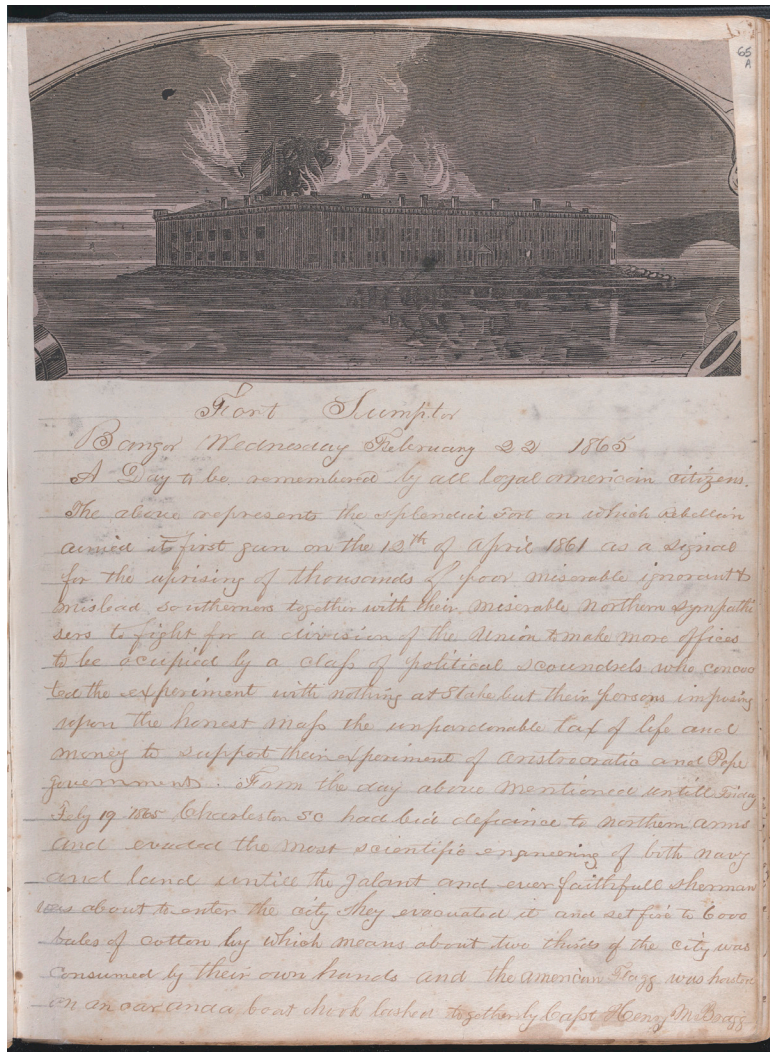 65
A
Fort Sumptor
Bangor Wednesday February 22 1865
A Day to be remembered by all loyal american citizens.
The above represents the splendid Fort on which rebellion
aimed its first gun on the 12th of April 1861 as a signal
for the uprising of thousands of poor miserable ignorant &
mislead southerners together with their miserable Northern sympathi
sers to fight for a division of the Union to make more offices
to be ocupied by a class of political scoundrels who concoc
ted the experiment with nothing at Stake but their persons imposing
upon the honest mass the unpardonable tax of life and
money to support their experiment of aristrocratic and Pope
government. From the day above mentioned untill Friday
Feby 19 1865 Charleston SC had bid defiance to northern arms
and evaded the most scientific engineering of both navy
and land untill the galant and ever faithfull Sherman
was about to enter the city they evacuated it and set fire to 6000
bales of cotton by which means about two thirds of the city was
consumed by their own hands and the american Flagg was hoisted
on an oar and a boat hook lashed together by Capt Henry M Bragg